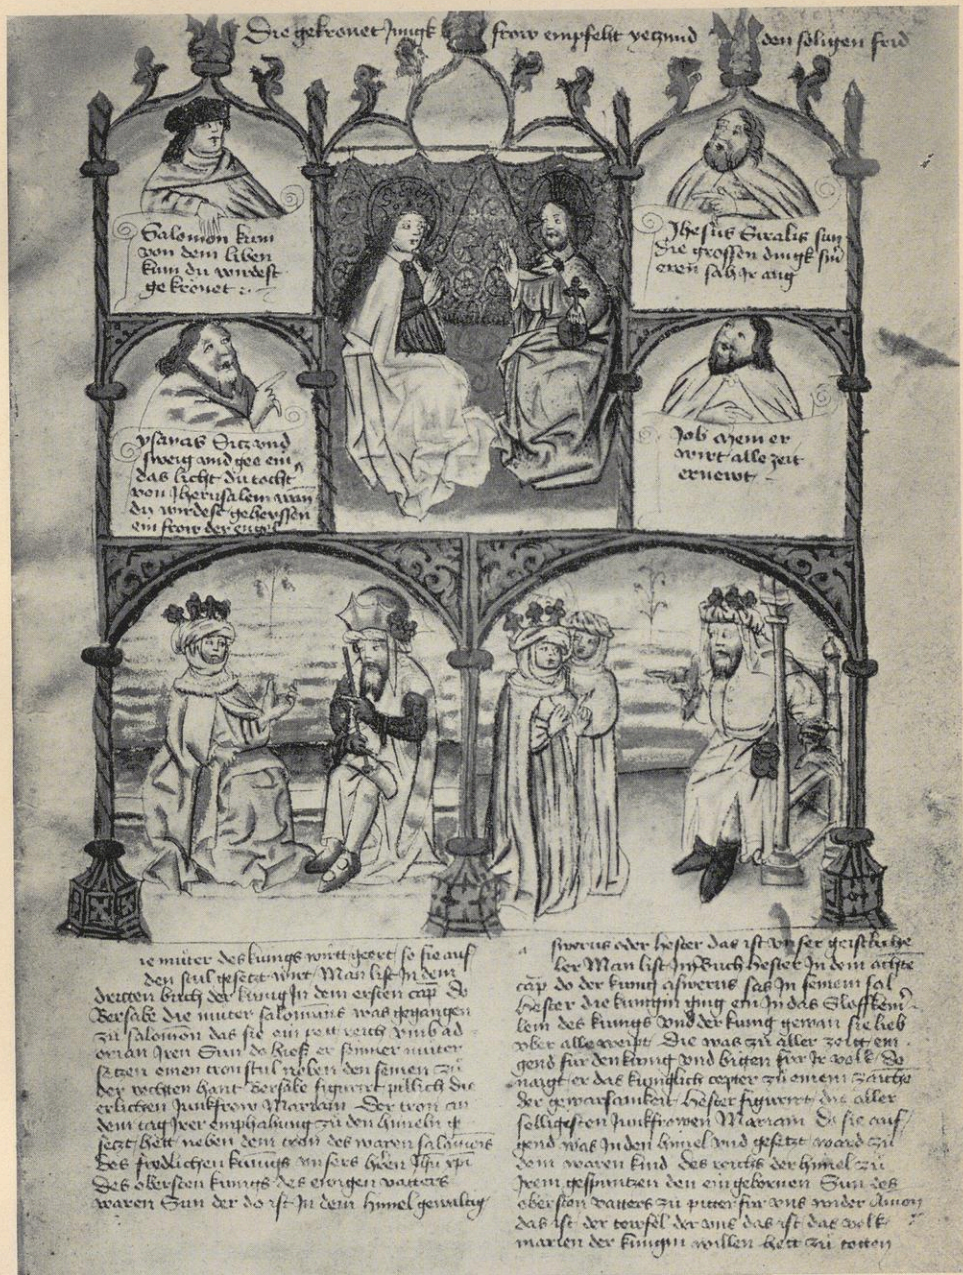 Die gekronet Junckfrow empfeht yetzund den seligen frid
Salomon kum
von dem liben
kum du wirdest
gekronet
Jhesus Siralis sun
die grossen dingk sin
eren sah Ir aug
ysayas Sitz und
sweig und gee ein
das licht du tocht
von Jherusalem wan
du wirdest geheyssen
ein frow der
Job mein er
wirt alle zeit
ernewt
ie muter des kungs wirt geert so sie auf
den stul gesetzt wirt Man list In dem
dritten buch der kunig In dem ersten cap do
Bersabe die muter salomonis was gegangen
zu salomon das sie ein reich umb ad
onian Iren Sun do hieß er sinner muter
setzen einen tronstul neben den seinen zu
der rechten hant Bersabe figurirt pillich die
erlichen Junkfrow Mariam Der tron an
dem tag Irer emphahung zu den himeln
setzt hett neben dem tron des waren salomonis
des fridlichen kunigs unsers hern Jhu xpi
des obersten kunigs des ewigen vatters
waren Sun der do ist In dem himel gewaltig
swerus oder hester das ist unser geistliche
ler Man list Im Buch hester In dem achte
cap do der kunig aswerus sas In seinem sal
hester die kungin ging ein In das Sloffkem
lein des kungs und der kunig gewan sie lieb
uber alle weipt Die was zu aller zeitt ein
gend fur den kunig und biten fur Ir volk Do
naigt er das kuniglich cepter zu einem zaiche
der gewarsamkeit Hester figurirt die aller
selligesten Junkfrowen Mariam do sie auf
gend was In den himel und gesetzt ward zu
dem waren kind des reichs der himel zu
Irem gespuntzen den eingebornen Sun des
obersten vatters zu pitten fur uns wider Amon
das ist der tewfel der uns das ist das volk
marien der kungin willen hett zu totten